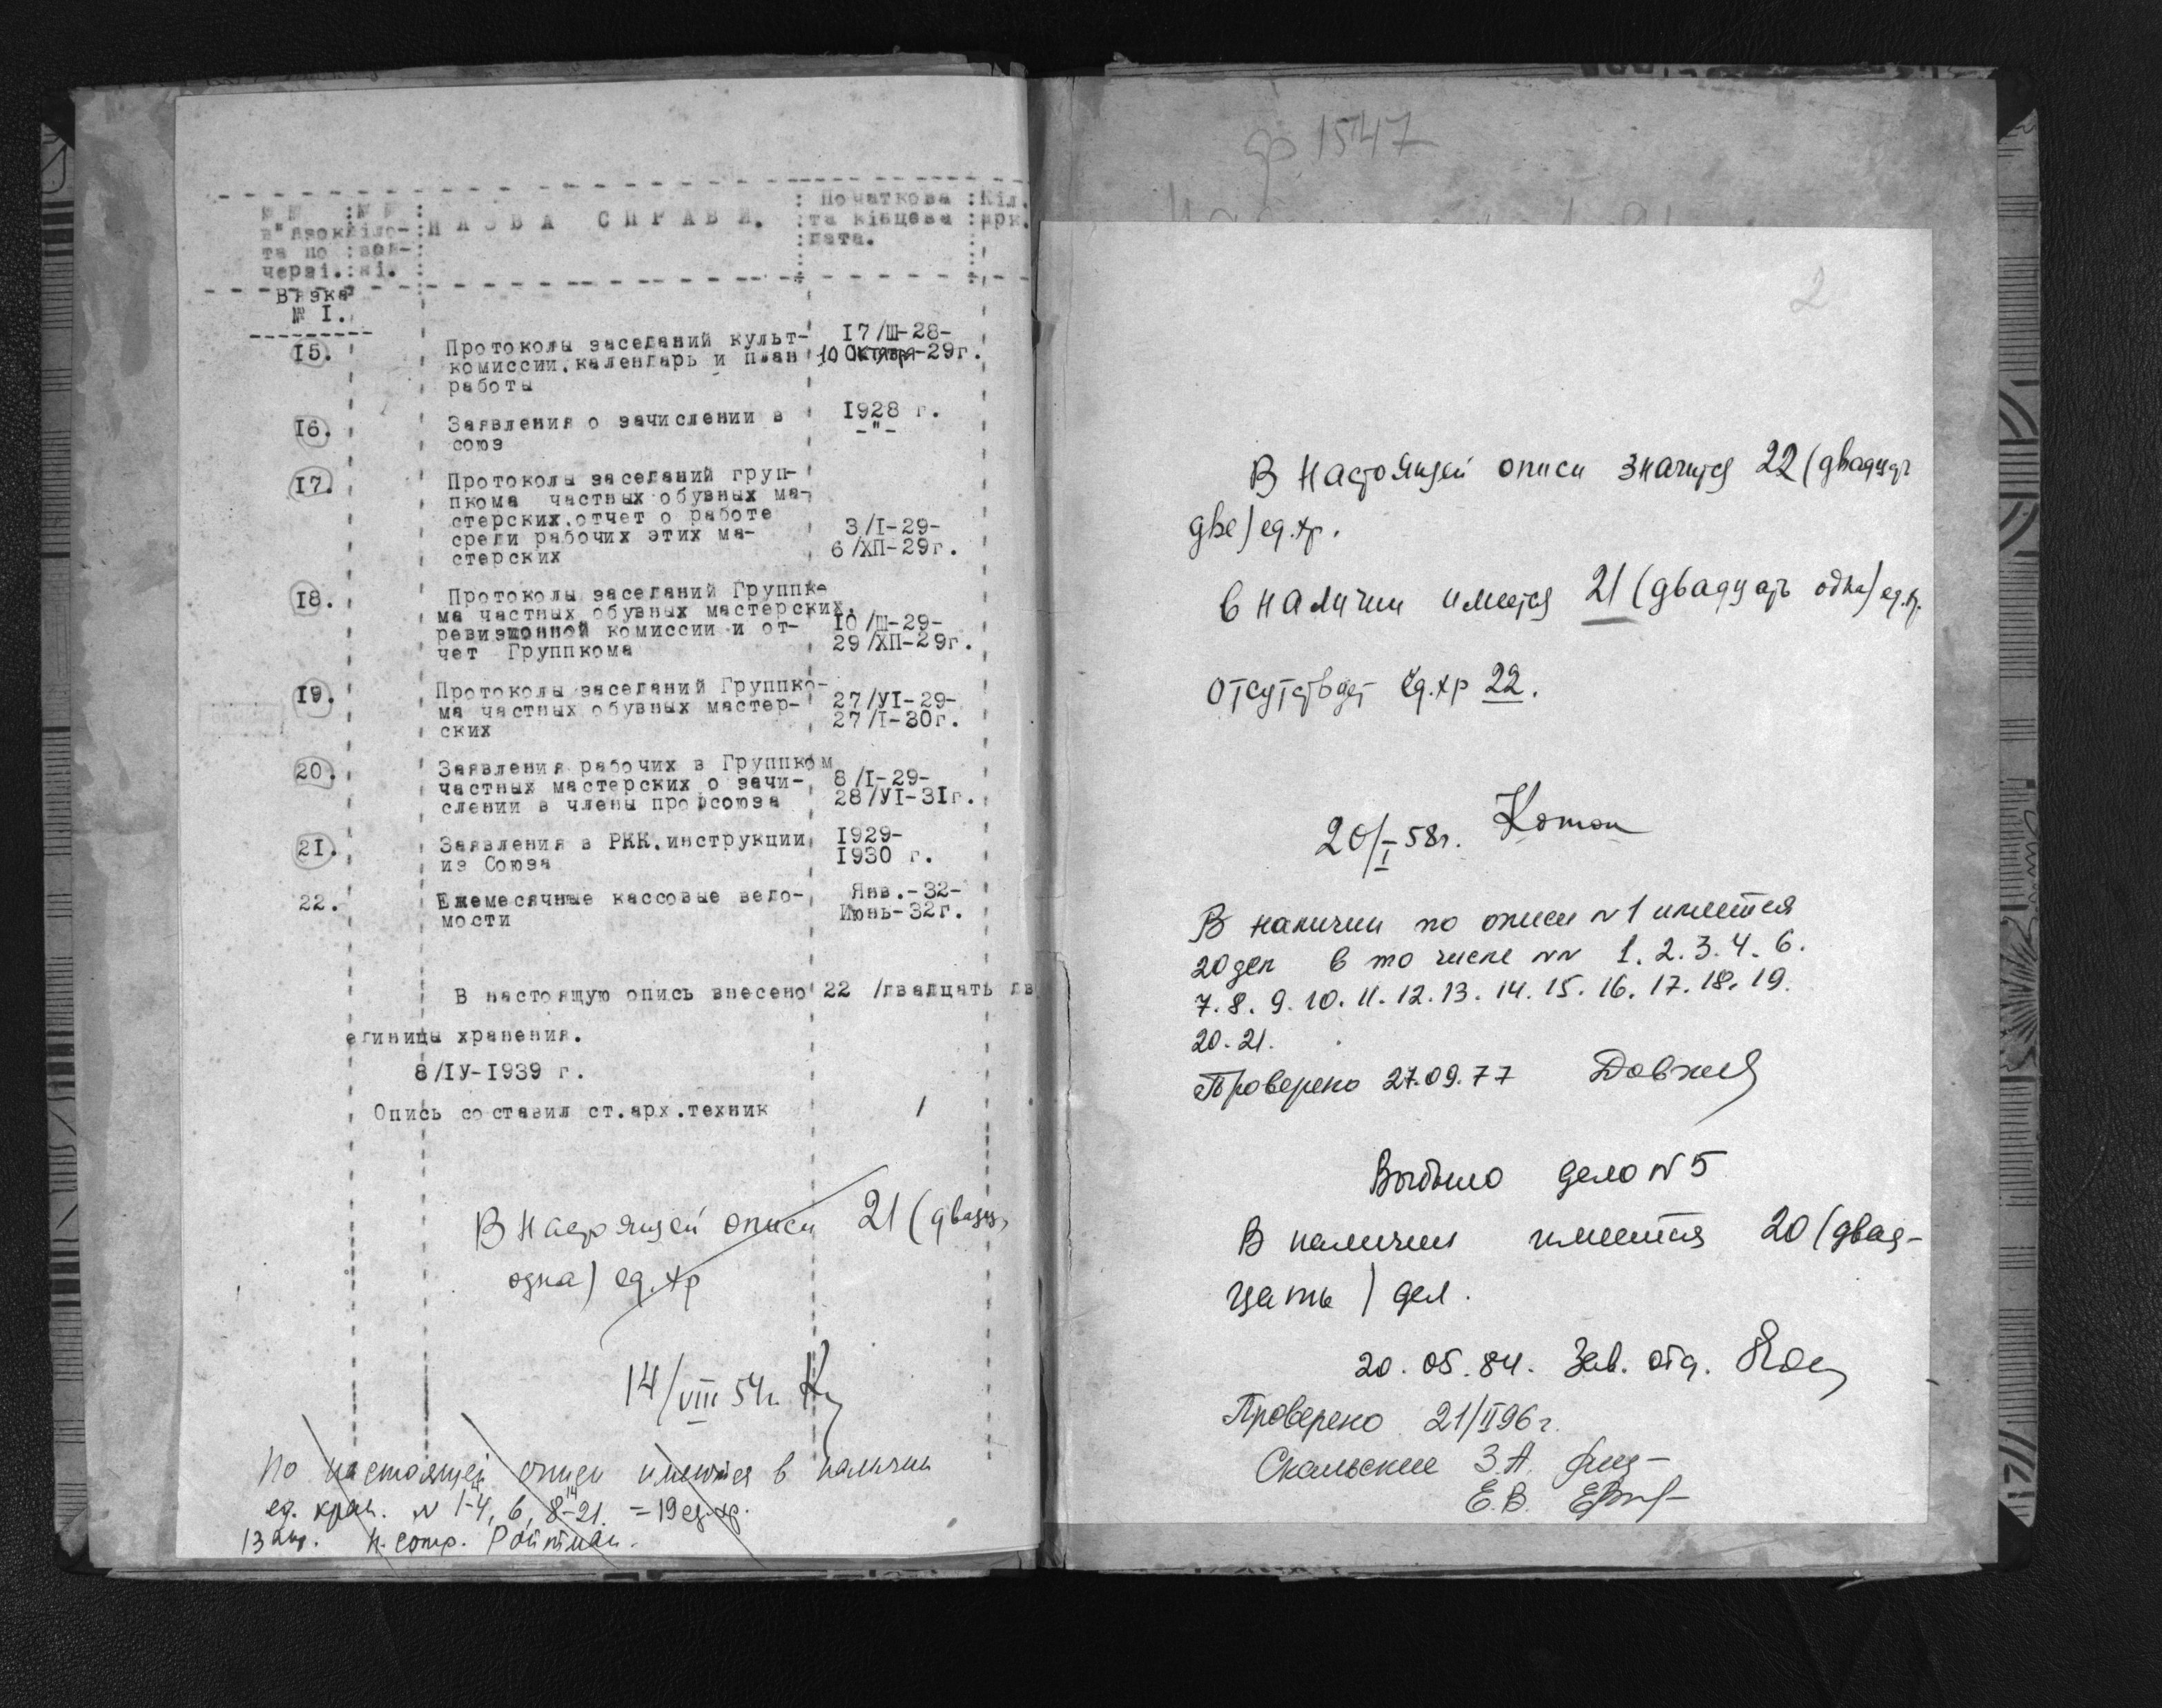 №№ : №№ : НАЗВА СПРАВИ. : Початкова : Кіл.
в"язок : діло- : та кінцева : арк.
та по : вод- : дата.
черзі. : ні. :
В'язка
№ I.
15. Протоколы заседаний культ- 17/Ш-28-
комиссии, календарь и план 10 Октябр-29г.
работы
16. Заявления о зачислении в 1928 г.
союз -"-
17. Протоколы заседаний груп-
пкома частных обувных ма-
стерских, отчет о работе
среди рабочих этих ма- 3/I-29-
стерских 6/ХП-29г.
18. Протоколы заседаний Группко-
ма частных обувных мастерских,
ревизионной комиссии и от- 10/Ш-29-
чет Группкома 29/ХП-29г.
19. Протоколы заседаний Группко-
ма частных обувных мастер- 27/УI-29-
ских 27/I-30г.
20. Заявления рабочих в Группком
частных мастерских о зачи- 8/I-29-
слении в члены профсоюза 28/УI-31г.
21. Заявления в РКК, инструкции 1929-
из Союза 1930 г.
22. Ежемесячные кассовые ведо- Янв.-32-
мости Июнь-32г.
В настоящую опись внесено 22 /двадцать дв
единицы хранения.
8/IУ-1939 г.
Опись составил ст.арх.техник
В настоящей описи 21 (двадц.
одна) ед.хр
14/VIII 54г.
По настоящей описи имеются в наличии
ед. хран. № 1-4, 6, 8-21. = 19 ед.хр.
14
н. сотр. Ройтман.
ф 1547
2
В настоящей описи значится 22 (двадцать
две) ед.хр.
в наличии имеется 21 (двадцать одна) ед.хр.
отсутствует ед.хр 22.
20/I 58г.
В наличии по описи №1 имеется
20 дел в то числе №№ 1. 2. 3. 4. 6.
7. 8. 9. 10. 11. 12. 13. 14. 15. 16. 17. 18. 19.
20. 21.
Проверено 27.09.77
Выбыло дело №5
В наличии имеется 20 (двад-
цать) дел.
20. 05. 84. Зав. отд.
Проверено 21/II 96г.
Скальские З.А.
Е.В.